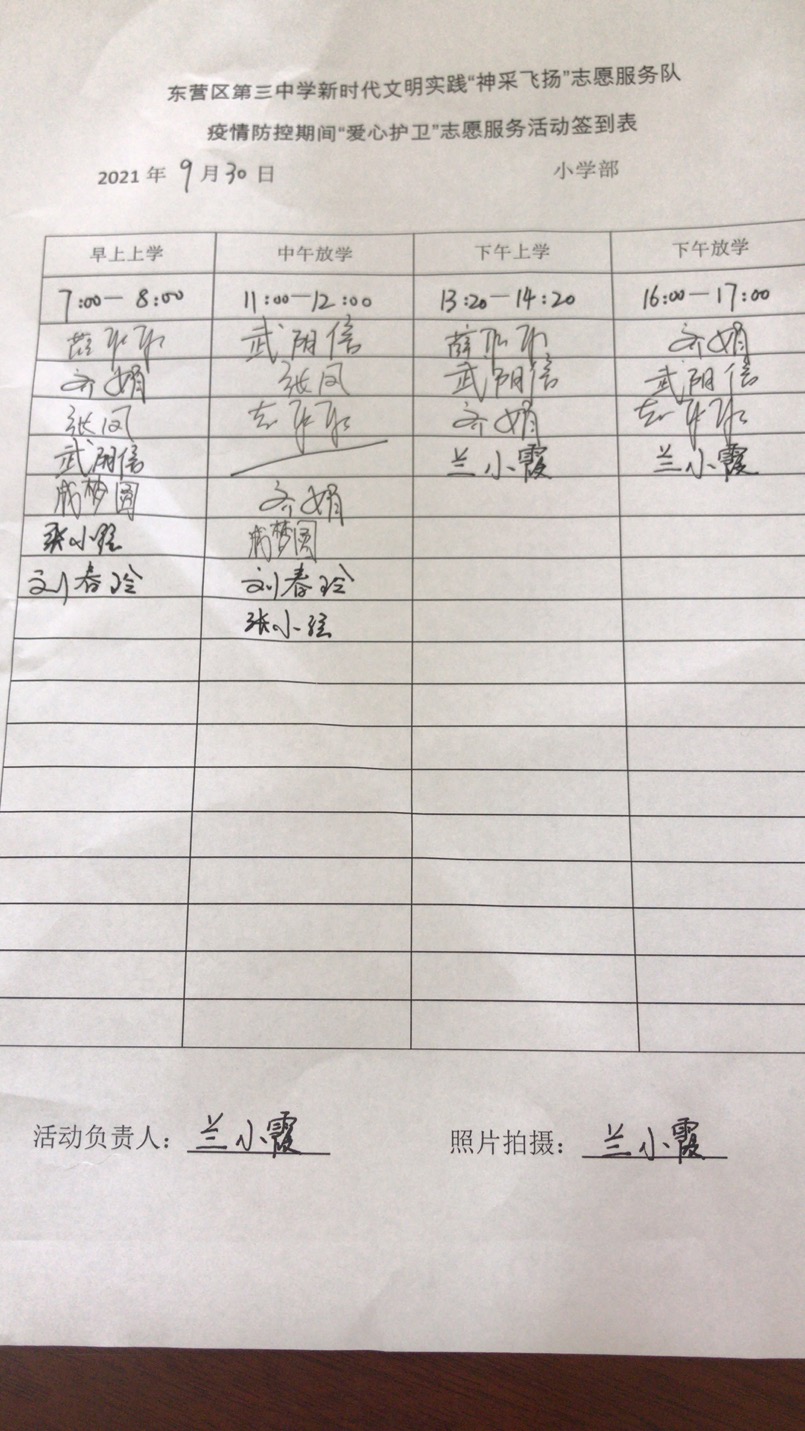 东营区第三中学新时代文明实践“神采飞扬”志愿服务队
疫情防控期间“爱心护卫”志愿服务活动签到表
2021 年 9 月 30 日 小学部
早上上学 中午放学 下午上学 下午放学
7:00－8:00 11:00－12:00 13:20－14:20 16:00－17:00
武阴信 齐娟
齐娟 张凤 武阴信 武阴信
张凤 齐娟
武阴信 兰小霞 兰小霞
齐娟
刘春玲 刘春玲
活动负责人：兰小霞 照片拍摄：兰小霞